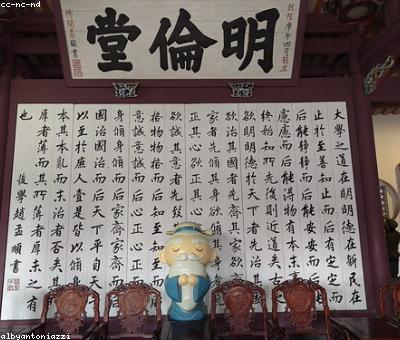 明倫堂
大學之道在明明德在新民在
止於至善知止而后有定定而
后能靜靜而后能安安而后能
慮慮而后能得物有本末事有
終始知所先後則近道矣古之
欲明明德於天下者先治其國
欲治其國者先齊其家欲齊其
家者先脩其身欲脩
正其心欲正其心
欲誠其意者先致
格物物格而后知至知至而后
意誠意誠而后心正心正而后
身脩身脩而后家齊家齊而后
國治國治而后天下平自天子
以至於庶人壹是皆以脩身為
本其本亂而末治者否矣其所
厚者薄而其所薄者厚未之有
也
後學趙孟頫書
cc-nc-nd
albyantoniazzi